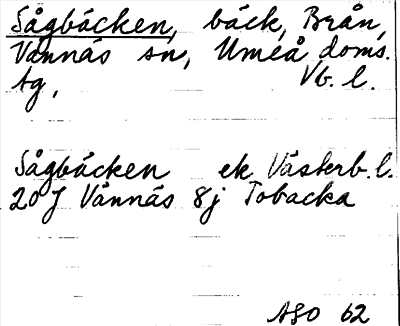 Sågbäcken, bäck, Brån,
Vännäs sn, Umeå doms.
tg, Vb. l.
Sågbäcken ek Västerb. l.
20 J Vännäs 8j Tobacka
ASO 62